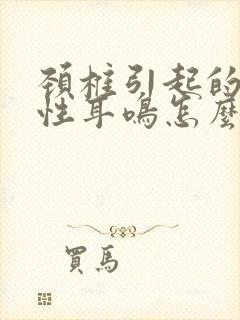 頚柱引起的
性耳鳴怎麼
買馬